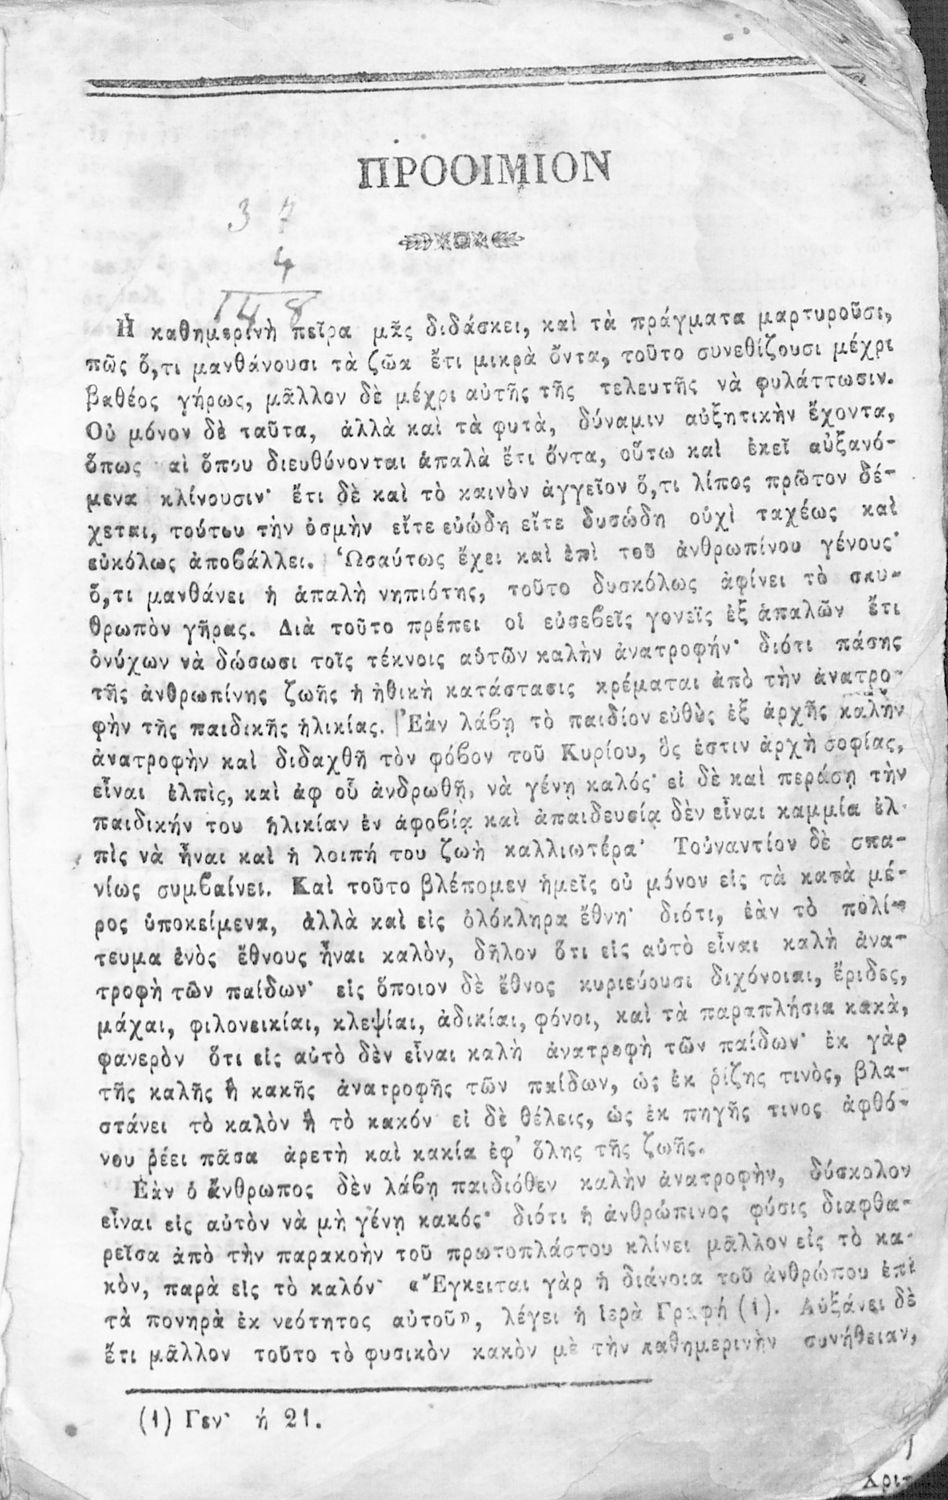 ΠΡΟΟΙΜΙΟΝ
37
4
148
Ἡ καθημερινὴ πεῖρα μᾶς διδάσκει, καὶ τὰ πράγματα μαρτυροῦσι,
πῶς ὅ,τι μανθάνουσι τὰ ζῶα ἔτι μικρὰ ὄντα, τοῦτο συνεθίζουσι μέχρι
βαθέος γήρως, μᾶλλον δὲ μέχρι αὐτῆς τῆς τελευτῆς νὰ φυλάττωσιν.
Οὐ μόνον δὲ ταῦτα, ἀλλὰ καὶ τὰ φυτὰ, δύναμιν αὐξητικὴν ἔχοντα,
ὅπως αἱ ὅπου διευθύνονται ἁπαλὰ ἔτι ὄντα, οὕτω καὶ ἐκεῖ αὐξανό-
μενα κλίνουσιν· ἔτι δὲ καὶ τὸ καινὸν ἀγγεῖον ὅ,τι λίπος πρῶτον δέ-
χεται, τούτου τὴν ὀσμὴν εἴτε εὐώδη εἴτε δυσώδη οὐχὶ ταχέως καὶ
εὐκόλως ἀποβάλλει. Ὡσαύτως ἔχει καὶ ἐπὶ τοῦ ἀνθρωπίνου γένους·
ὅ,τι μανθάνει ἡ ἁπαλὴ νηπιότης, τοῦτο δυσκόλως ἀφίνει τὸ σκυ-
θρωπὸν γῆρας. Διὰ τοῦτο πρέπει οἱ εὐσεβεῖς γονεῖς ἐξ ἁπαλῶν ἔτι
ὀνύχων νὰ δώσωσι τοῖς τέκνοις αὑτῶν καλὴν ἀνατροφήν· διότι πάσης
τῆς ἀνθρωπίνης ζωῆς ἡ ἠθικὴ κατάστασις κρέμαται ἀπὸ τὴν ἀνατρο-
φὴν τῆς παιδικῆς ἡλικίας. Ἐὰν λάβῃ τὸ παιδίον εὐθὺς ἐξ ἀρχῆς καλὴν
ἀνατροφὴν καὶ διδαχθῇ τὸν φόβον τοῦ Κυρίου, ὅς ἐστιν ἀρχὴ σοφίας,
εἶναι ἐλπὶς, καὶ ἀφ οὗ ἀνδρωθῇ, νὰ γένῃ καλός· εἰ δὲ καὶ περάσῃ τὴν
παιδικήν του ἡλικίαν ἐν ἀφοβίᾳ καὶ ἀπαιδευσίᾳ δὲν εἶναι καμμία ἐλ-
πὶς νὰ ἦναι καὶ ἡ λοιπή του ζωὴ καλλιωτέρα· Τοὐναντίον δὲ σπα-
νίως συμβαίνει. Καὶ τοῦτο βλέπομεν ἡμεῖς οὐ μόνον εἰς τὰ κατὰ μέ-
ρος ὑποκείμενα, ἀλλὰ καὶ εἰς ὁλόκληρα ἔθνη· διότι, ἐὰν τὸ πολί-
τευμα ἑνὸς ἔθνους ἦναι καλὸν, δῆλον ὅτι εἰς αὐτὸ εἶναι καλὴ ἀνα-
τροφὴ τῶν παίδων· εἰς ὅποιον δὲ ἔθνος κυριεύουσι διχόνοιαι, ἔριδες,
μάχαι, φιλονεικίαι, κλεψίαι, ἀδικίαι, φόνοι, καὶ τὰ παραπλήσια κακὰ,
φανερὸν ὅτι εἰς αὐτὸ δὲν εἶναι καλὴ ἀνατροφὴ τῶν παίδων· ἐκ γὰρ
τῆς καλῆς ἢ κακῆς ἀνατροφῆς τῶν παίδων, ὡς ἐκ ῥίζης τινὸς, βλα-
στάνει τὸ καλὸν ἢ τὸ κακόν· εἰ δὲ θέλεις, ὡς ἐκ πηγῆς τινος ἀφθό-
νου ῥέει πᾶσα ἀρετὴ καὶ κακία ἐφ’ ὅλης τῆς ζωῆς.
Ἐὰν ὁ ἄνθρωπος δὲν λάβῃ παιδιόθεν καλὴν ἀνατροφὴν, δύσκολον
εἶναι εἰς αὐτὸν νὰ μὴ γένῃ κακός· διότι ἡ ἀνθρώπινος φύσις διαφθα-
ρεῖσα ἀπὸ τὴν παρακοὴν τοῦ πρωτοπλάστου κλίνει μᾶλλον εἰς τὸ κα-
κὸν, παρὰ εἰς τὸ καλόν· «Ἔγκειται γὰρ ἡ διάνοια τοῦ ἀνθρώπου ἐπὶ
τὰ πονηρὰ ἐκ νεότητος αὐτοῦ», λέγει ἡ Ἱερὰ Γραφή (1). Αὐξάνει δὲ
ἔτι μᾶλλον τοῦτο τὸ φυσικὸν κακὸν μὲ τὴν καθημερινὴν συνήθειαν,
(1) Γεν· ή 21.